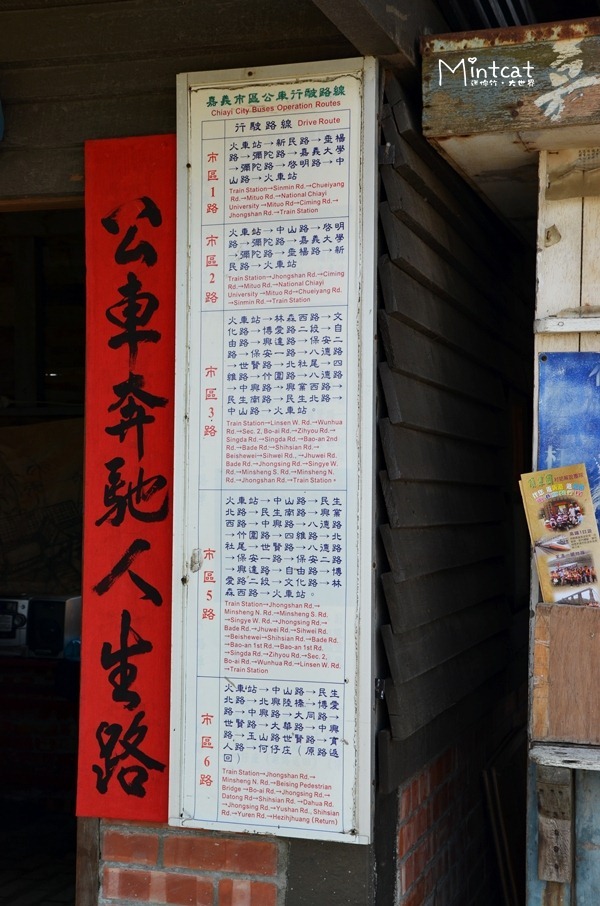 Mintcat
迷你竹·大世界
公車奔馳人生路
嘉義市區公車行駛路線
Chiayi City Buses Operation Routes
行駛路線 Drive Route
市區1路
火車站→新民路→垂楊
路→彌陀路→嘉義大學
→彌陀路→啓明路→中
山路→火車站
Train Station→Sinmin Rd.→Chueiyang
Rd.→Mituo Rd.→National Chiayi
University →Mituo Rd→Ciming Rd.→
Jhongshan Rd.→Train Station
市區2路
火車站→中山路→啓明
路→彌陀路→嘉義大學
→彌陀路→垂楊路→新
民路→火車站
Train Station→Jhongshan Rd.→Ciming
Rd.→Mituo Rd.→National Chiayi
University →Mituo Rd→Chueiyang Rd.
→Sinmin Rd.→Train Station
市區3路
火車站→林森西路→文
化路→博愛路二段→自
由路→興達路→保安二
路→保安一路→八德路
→世賢路→北社尾→四
維路→竹圍路→八德路
→中興路→興業西路→
民生南路→民生北路→
中山路→火車站。
Train Station→Linsen W. Rd.→Wunhua
Rd.→Sec. 2, Bo-ai Rd.→Zihyou Rd.→
Singda Rd.→Singda Rd.→Bao-an 2nd
Rd.→Bade Rd.→Shihsian Rd.→
Beishewei→Sihwei Rd., →Jhuwei Rd.
Bade Rd.→Jhongsing Rd.→Singye W.
Rd.→Minsheng S. Rd.→Minsheng N.
Rd.→Jhongshan Rd.→Train Station。
市區5路
火車站→中山路→民生
北路→民生南路→興業
西路→中興路→八德路
→竹圍路→四維路→北
社尾→世賢路→八德路
→保安一路→保安二路
→興達路→自由路→博
愛路二段→文化路→林
森西路→火車站
Train Station→Jhongshan Rd.→
Minsheng N. Rd.→Minsheng S. Rd.
→Singye W. Rd.→Jhongsing Rd.→
Bade Rd.→Jhuwei Rd.→Sihwei Rd.
→Beishewei→Shihsian Rd.→Bade Rd.
→Bao-an 1st Rd.→Bao-an 1st Rd.
→Singda Rd.→Zihyou Rd.→Sec. 2,
Bo-ai Rd.→Wunhua Rd.→Linsen W. Rd.
→Train Station
市區6路
火車站→中山路→民生
北路→北興陸橋→博愛
路→中興路→大同路→
世賢路→大華路→中興
路→玉山路世賢路→育
人路→何仔庄（原路返
回）
Train Station→Jhongshan Rd.→
Minsheng N. Rd.→Beising Pedestrian
Bridge →Bo-ai Rd.→Jhongsing Rd.→
Datong Rd→Shihsian Rd.→Dahua Rd.
→Jhongsing Rd.→Yushan Rd., Shihsian
Rd.→Yuren Rd.→Hezihjhuang (Return)